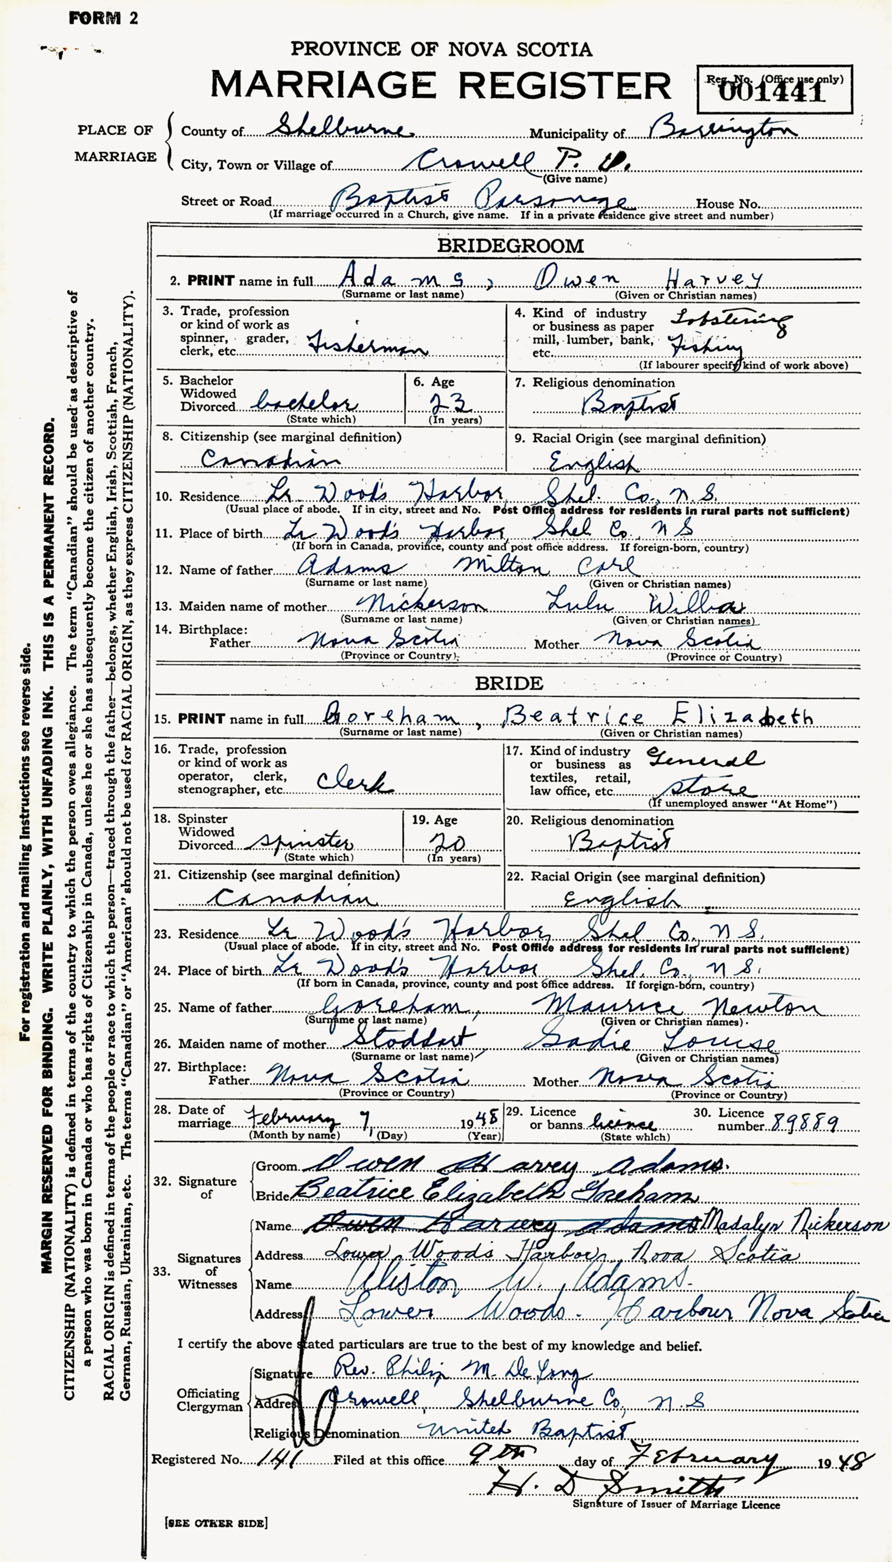 FORM 2
PROVINCE OF NOVA SCOTIA
MARRIAGE REGISTER
Reg. No. (Office use only)
001441
PLACE OF MARRIAGE
County of Shelburne Municipality of Barrington
City, Town or Village of Crowell P. O.
(Give name)
Street or Road Baptist Parsonage House No.
(If marriage occurred in a Church, give name. If in a private residence give street and number)
BRIDEGROOM
2. PRINT name in full Adams, Owen Harvey
(Surname or last name) (Given or Christian names)
3. Trade, profession or kind of work as spinner, grader, clerk, etc. Fisherman
4. Kind of industry or business as paper mill, lumber, bank, etc. Lobstering Fishing
(If labourer specify kind of work above)
5. Bachelor Widowed Divorced bachelor
(State which)
6. Age 23
(In years)
7. Religious denomination
Baptist
8. Citizenship (see marginal definition)
Canadian
9. Racial Origin (see marginal definition)
English
10. Residence Lr. Wood's Harbor, Shel. Co., N.S.
(Usual place of abode. If in city, street and No. Post Office address for residents in rural parts not sufficient)
11. Place of birth Lr Wood's Harbor, Shel Co, N S
(If born in Canada, province, county and post office address. If foreign-born, country)
12. Name of father Adams Milton Carl
(Surname or last name) (Given or Christian names)
13. Maiden name of mother Nickerson Lulu Willia
(Surname or last name) (Given or Christian names)
14. Birthplace:
Father Nova Scotia Mother Nova Scotia
(Province or Country) (Province or Country)
BRIDE
15. PRINT name in full Goreham, Beatrice Elizabeth
(Surname or last name) (Given or Christian names)
16. Trade, profession or kind of work as operator, clerk, stenographer, etc. Clerk
17. Kind of industry or business as textiles, retail, law office, etc. General store
(If unemployed answer "At Home")
18. Spinster Widowed Divorced spinster
(State which)
19. Age 20
(In years)
20. Religious denomination
Baptist
21. Citizenship (see marginal definition)
Canadian
22. Racial Origin (see marginal definition)
English
23. Residence Lr Wood's Harbor, Shel Co., N S.
(Usual place of abode. If in city, street and No. Post Office address for residents in rural parts not sufficient)
24. Place of birth Lr Wood's Harbor Shel Co., N S.
(If born in Canada, province, county and post office address. If foreign-born, country)
25. Name of father Goreham, Maurice Newton
(Surname or last name) (Given or Christian names)
26. Maiden name of mother Stoddart Sadie Louise
(Surname or last name) (Given or Christian names)
27. Birthplace:
Father Nova Scotia Mother Nova Scotia
(Province or Country) (Province or Country)
28. Date of marriage February 7, 1948
(Month by name) (Day) (Year)
29. Licence or banns license
(State which)
30. Licence number 89889
32. Signature of
Groom Owen Harvey Adams.
Bride Beatrice Elizabeth Goreham
33. Signatures of Witnesses
Name Owen Harvey Adams Madalyn Nickerson
Address Lower Wood's Harbor, Nova Scotia
Name Aliston W. Adams.
Address Lower Woods. Harbour Nova Scotia
I certify the above stated particulars are true to the best of my knowledge and belief.
Officiating Clergyman
Signature Rev. Philip M. De Long
Address Crowell, Shelburne Co, N.S
Religious Denomination United Baptist
Registered No. 141 Filed at this office 9th day of February 1948
H. D Smith
Signature of Issuer of Marriage Licence
[SEE OTHER SIDE]
For registration and mailing instructions see reverse side.
MARGIN RESERVED FOR BINDING. WRITE PLAINLY, WITH UNFADING INK. THIS IS A PERMANENT RECORD.
CITIZENSHIP (NATIONALITY) is defined in terms of the country to which the person owes allegiance. The term "Canadian" should be used as descriptive of
a person who was born in Canada or who has rights of Citizenship in Canada, unless he or she has subsequently become the citizen of another country.
RACIAL ORIGIN is defined in terms of the people or race to which the person—traced through the father—belongs, whether English, Irish, Scottish, French,
German, Russian, Ukrainian, etc. The terms "Canadian" or "American" should not be used for RACIAL ORIGIN, as they express CITIZENSHIP (NATIONALITY).